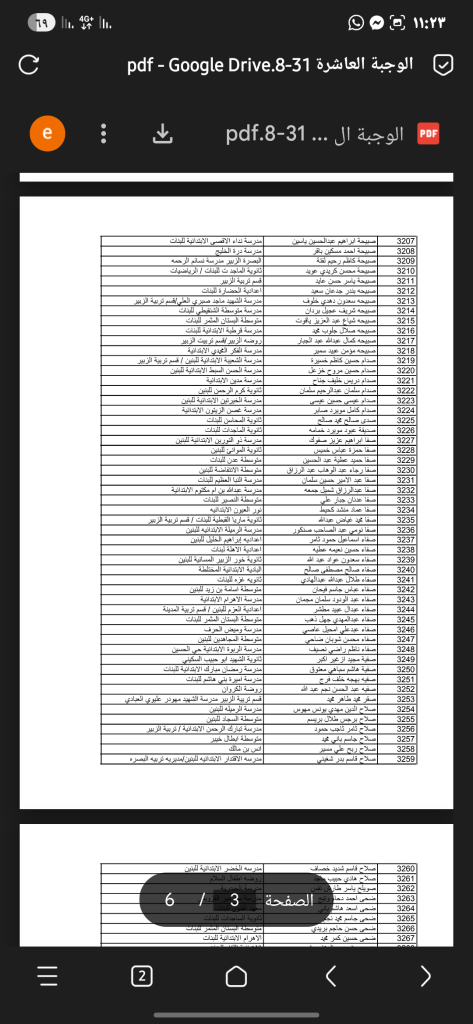 ٦٩
4G+
١١:٢٣
الوجبة العاشرة 31-8.pdf - Google Drive
e
الوجبة ال ... 31-8.pdf
PDF
3207 صبيحة ابراهيم عبدالحسين ياسين مدرسة نداء الاقصى الابتدائية للبنات
3208 صبيحة احمد مسكين باقر مدرسة درة الخليج
3209 صبيحة كاظم رحيم لفتة البصرة الزبير مدرسة نسائم الرحمه
3210 صبيحة محسن كريدي عويد ثانوية الماجدات للبنات / الرياضيات
3211 صبيحة ياسر حسن عايد قسم تربية الزبير
3212 صبيحه بندر جدعان سعيد اعدادية الحضارة للبنات
3213 صبيحه سعدون دهدي خلوف مدرسة الشهيد ماجد صبري العلي/قسم تربية الزبير
3214 صبيحه شريف عجيل بردان مدرسة متوسطة الشنقيطي للبنات
3215 صبيحه شياع عبد العزيز ياقوت متوسطة البستان المثمر للبنات
3216 صبيحه صلال جلوب محمد مدرسة قرطبة الابتدائية للبنات
3217 صبيحه كمال عبدالله عبد الجبار روضه الزبير/قسم تربيت الزبير
3218 صبيحه مؤمن عبيد سمير مدرسة الفكر المحمدي الابتدائية
3219 صدام حسين كاظم خضيرة مدرسة الشعيبة الابتدائية للبنين / قسم تربية الزبير
3220 صدام حسين مروح خزعل مدرسة الحسن السبط الابتدائية للبنين
3221 صدام دريس خليف جناح مدرسة مدين الابتدائية
3222 صدام سلمان عبدالرحيم سلمان ثانوية كرم الرحمن للبنين
3223 صدام عيسى حسين عيسى مدرسة الخيرتين الابتدائية للبنين
3224 صدام كامل مويرد صابر مدرسة غصن الزيتون الابتدائية
3225 صدى صالح محمد صالح ثانوية المحاسن للبنات
3226 صديقة عبود مويرد حمامه ثانوية الماجدات للبنات
3227 صفا ابراهيم عزيز صفوك مدرسة ذو النورين الابتدائية للبنين
3228 صفا حمزة عباس خميس ثانوية الموانئ للبنين
3229 صفا حميد عطية عبد الحسين متوسطة عدن للبنات
3230 صفا رجاء عبد الوهاب عبد الرزاق متوسطة الانتفاضة للبنين
3231 صفا عبد الامير حسين سلمان مدرسة النبأ العظيم للبنات
3232 صفا عبدالرزاق شميل جمعه مدرسة عبدالله بن ام مكتوم الابتدائية
3233 صفا عدنان جبار علي متوسطة النصير للبنات
3234 صفا عماد منشد كحيط نور العيون الابتدائيه
3235 صفا محمد غياض عبدالله ثانوية ماريا القبطية للبنات / قسم تربية الزبير
3236 صفا نومي عبد الصاحب صنكور مدرسة الرميلة الابتدائيه للبنين
3237 صفاء اسماعيل حمود ثامر اعداديه إبراهيم الخليل للبنين
3238 صفاء حسين نعيمه عطيه اعدادية الاهلة لبنات
3239 صفاء سعدون عواد عبد الله ثانوية خور الزبير المسائية للبنين
3240 صفاء صالح مصطفى صالح البادية الابتدائية المختلطة
3241 صفاء طلال عبدالله عبدالهادي ثانويه غزه للبنات
3242 صفاء عباس جاسم فيحان متوسطة اسامة بن زيد للبنين
3243 صفاء عبد الودود سلمان محمدان مدرسة الاهرام الابتدائية
3244 صفاء عبدال عبيد مطشر اعدادية العزم للبنين / قسم تربية المدينة
3245 صفاء عبدالمهدي جهل ذهب متوسطة البستان المثمر للبنات
3246 صفاء عبدعلي امحيل عاصي مدرسة وميض الحرف
3247 صفاء محسن شوبان ضاحي متوسطة المجاهدين للبنين
3248 صفاء ناظم راضي نصيف مدرسة الربوة الابتدائية حي الحسين
3249 صفية مجيد ازغير اكبر ثانوية الشهيد ابو حبيب السكيني
3250 صفية هاشم سباهي معتوق مدرسة رمضان مبارك الابتدائية للبنات
3251 صفيه بهجه خلف فرج مدرسة اميرة بني هاشم للبنات
3252 صفيه عبد الحسن نجم عبد الله روضة الكروان
3253 صقر محمد طاهر محمد قسم تربية الزبير مدرسة الشهيد مهودر عليوي العبادي
3254 صلاح الدين مهدي يونس مهوس مدرسة الرميلة للبنين
3255 صلاح برجس طلال بريسم متوسطة السجاد للبنين
3256 صلاح ثامر ثاجب حمود مدرسة تبارك الرحمن الابتدائية / تربية الزبير
3257 صلاح جاسم ياني محمد متوسطة ابطال خيبر
3258 صلاح ربح علي مسير انس بن مالك
3259 صلاح قاسم بدر شغيتي مدرسه الاقتدار الابتدائيه للبنين/مديريه تربيه البصره
3260 صلاح قاسم شديد خصاف مدرسه الخضر الابتدائية للبنين
3261 صلاح هادي حبيب
3262 صويلح ياسر طارش
3263 ضحى احمد
3264 ضحى اسعد
3265 ضحى جاسم محمد ثانوية الماجدات للبنات
3266 ضحى حسن حاجم بريدي متوسطة البستان المثمر للبنات
3267 ضحى حسين كمر محمد الاهرام الابتدائية للبنات
الصفحة 3 / 6
2